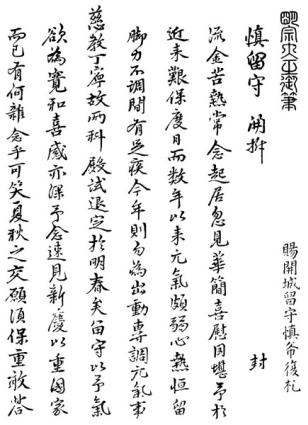 明宗大王御筆
賜開城留守愼希復札
愼留守 開拆 封
流金苦熱常念起居忽見華簡喜慰予於
近来艱保度日而数年以来元氣頗弱心熱恒留
脚力不調間有足疾今年則勿爲出動專調元氣事
慈教丁寧故而科殿試退定於明春矣留守以予氣
欲爲寬和喜感亦深予念速見新慶以重国家
而已有何雜念乎可笑夏秋之交願須保重敢答